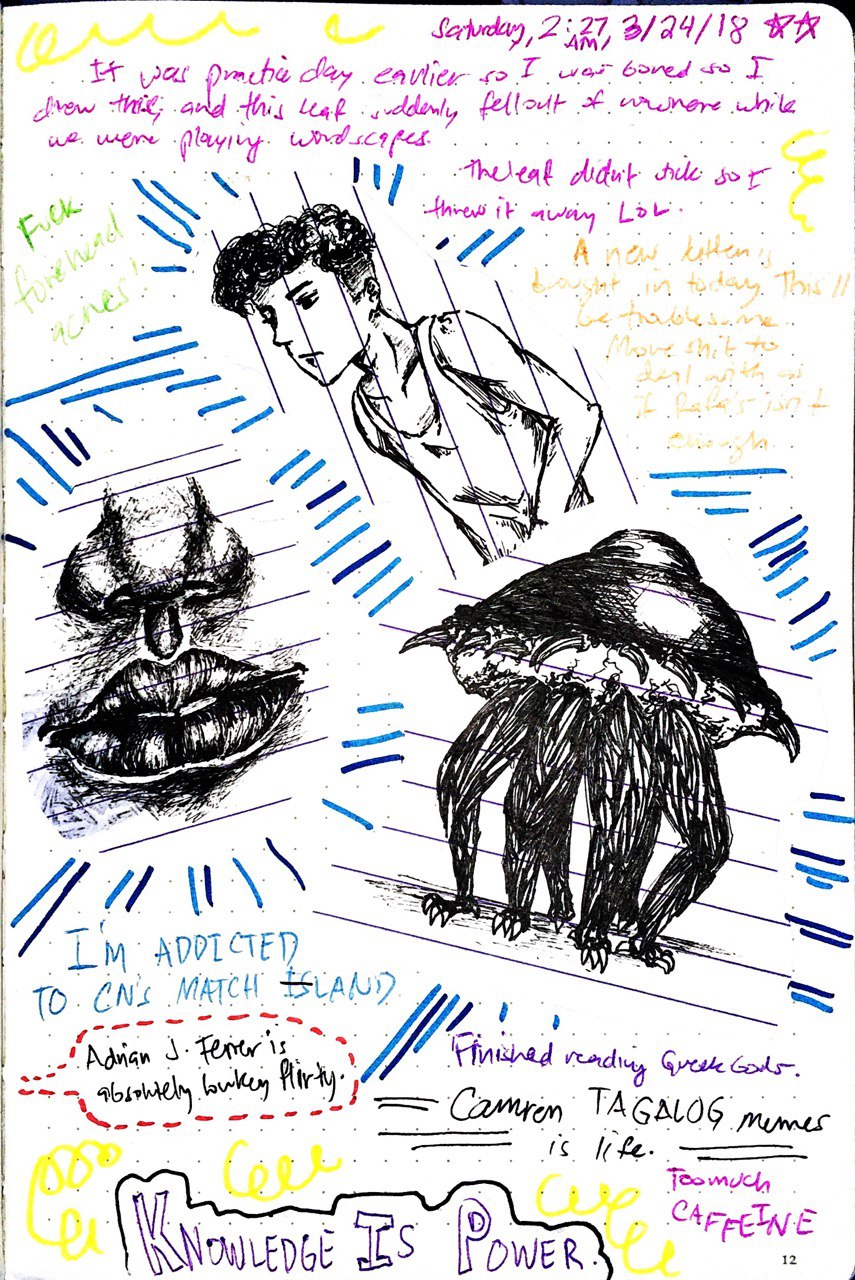 Saturday, 2:27 AM, 3/24/18
It was practice day earlier so I was bored so I
drew this, and this leaf suddenly fell out of nowhere while
we were playing wordscapes.
The leaf didn't stick so I
threw it away LOL.
Fuck
forehead
acnes!
A new kitten is
brought in today. This'll
be troublesome.
More shit to
deal with as
if Rafa's isn't
enough
I'M ADDICTED
TO CN's MATCH ISLAND
Adrian J. Ferrer is
absolutely lowkey flirty.
Finished reading Greek Gods.
Camren TAGALOG memes
is life.
Too much
CAFFEINE
KNOWLEDGE IS POWER.
12